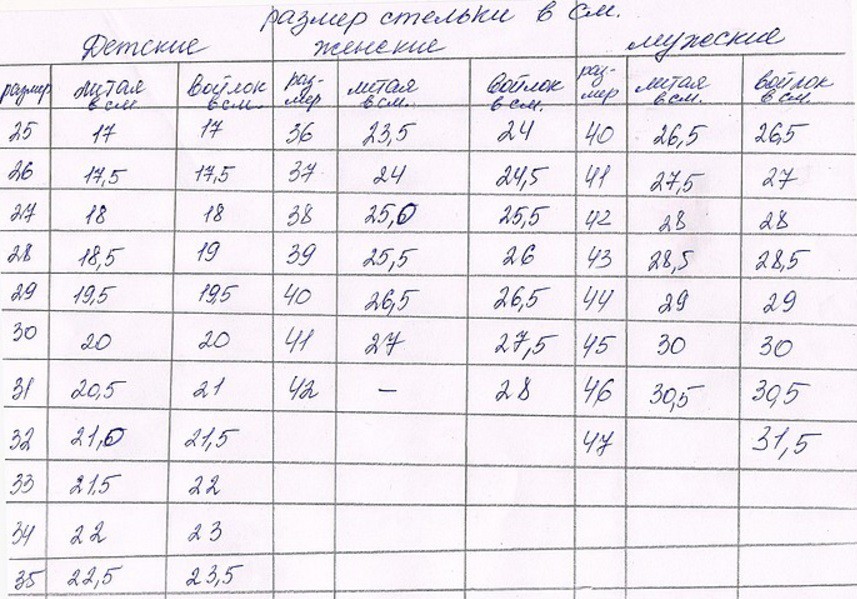 размер стельки в см.
Детские женские мужские
размер литая в см Войлок в см. раз-мер литая в см. Войлок в см. раз-мер литая в см. войлок в см.
25 17 17 36 23,5 24 40 26,5 26,5
26 17,5 17,5 37 24 24,5 41 27,5 27
27 18 18 38 25,0 25,5 42 28 28
28 18,5 19 39 25,5 26 43 28,5 28,5
29 19,5 19,5 40 26,5 26,5 44 29 29
30 20 20 41 27 27,5 45 30 30
31 20,5 21 42 – 28 46 30,5 30,5
32 21,0 21,5 47 31,5
33 21.5 22
34 22 23
35 22,5 23,5